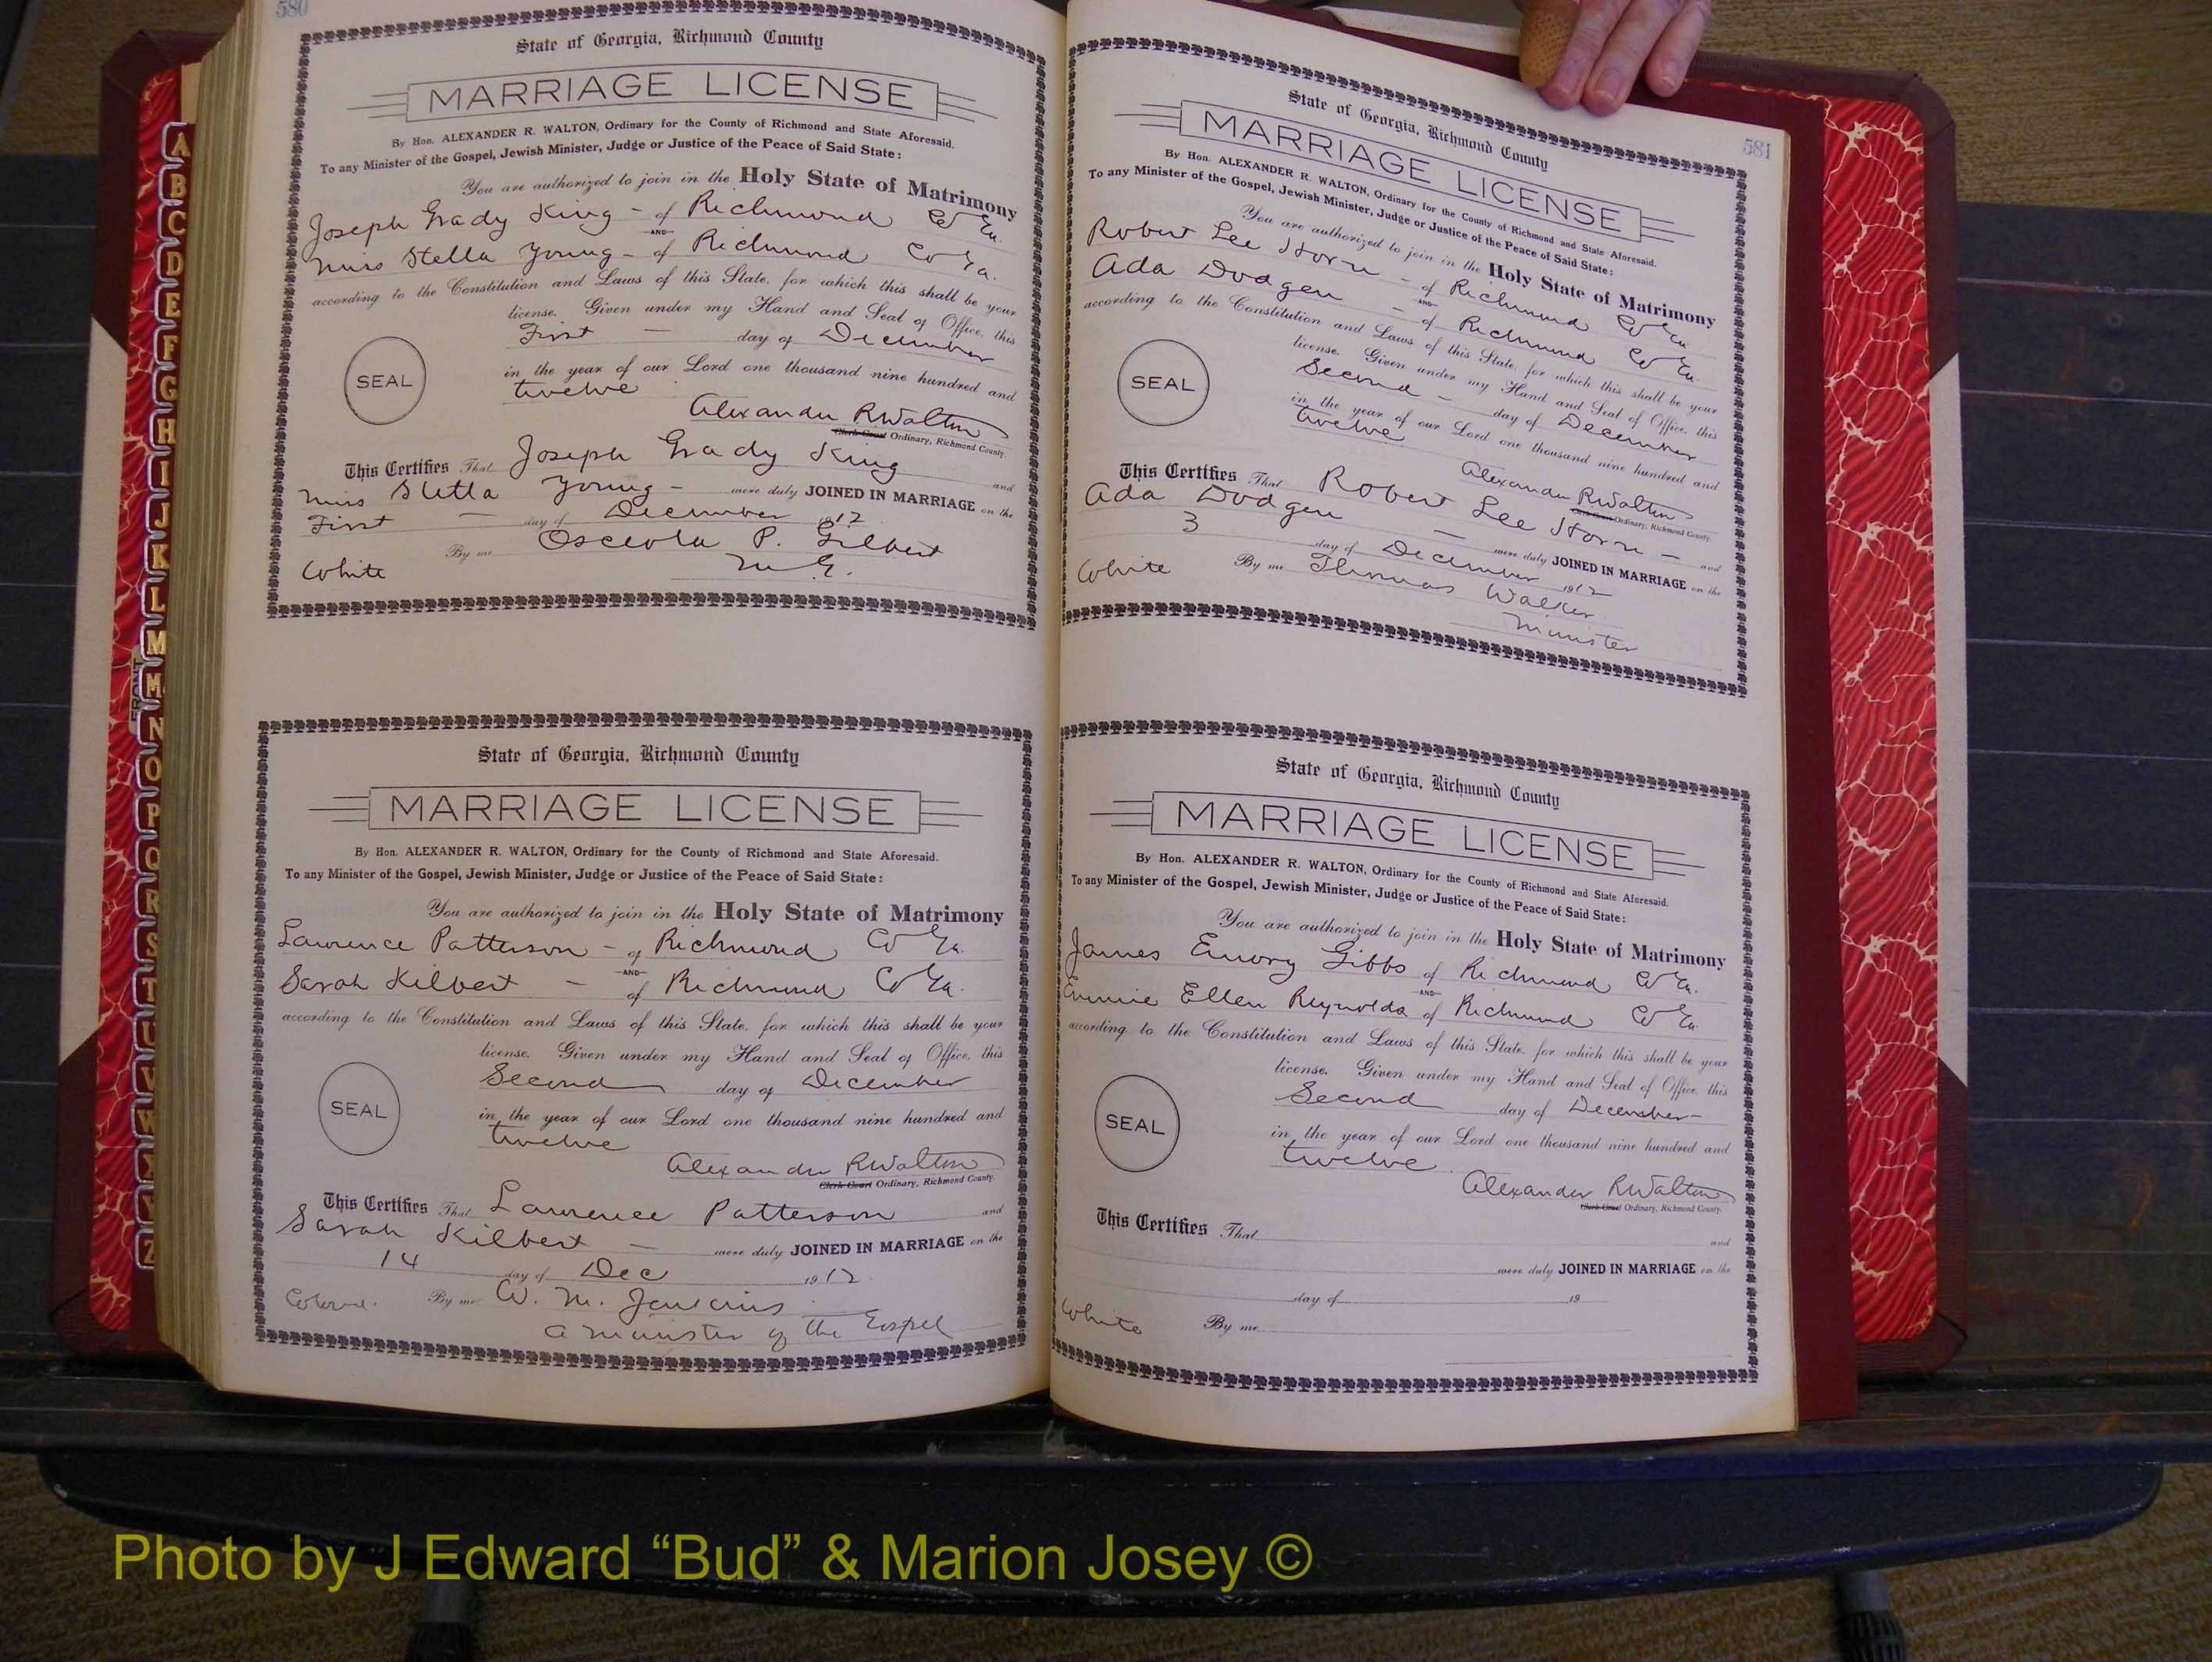 580
State of Georgia, Richmond County
MARRIAGE LICENSE
By Hon. ALEXANDER R. WALTON, Ordinary for the County of Richmond and State Aforesaid.
To any Minister of the Gospel, Jewish Minister, Judge or Justice of the Peace of Said State:
You are authorized to join in the Holy State of Matrimony
Joseph Grady King - of Richmond Co Ga.
AND
Miss Stella Young - of Richmond Co Ga.
according to the Constitution and Laws of this State, for which this shall be your
license. Given under my Hand and Seal of Office, this
First - day of December
SEAL
in the year of our Lord one thousand nine hundred and
twelve
Alexander R Walton
Clerk Court Ordinary, Richmond County.
This Certifies That Joseph Grady King and
Miss Stella Young - were duly JOINED IN MARRIAGE on the
First - day of December 1912
By me Osceola P. Gilbert
White M.G.
State of Georgia, Richmond County
MARRIAGE LICENSE
By Hon. ALEXANDER R. WALTON, Ordinary for the County of Richmond and State Aforesaid.
To any Minister of the Gospel, Jewish Minister, Judge or Justice of the Peace of Said State:
You are authorized to join in the Holy State of Matrimony
Lawrence Patterson - of Richmond Co Ga.
AND
Sarah Kilbert - of Richmond Co Ga.
according to the Constitution and Laws of this State, for which this shall be your
license. Given under my Hand and Seal of Office, this
Second day of December
SEAL
in the year of our Lord one thousand nine hundred and
twelve
Alexander R Walton
Clerk Court Ordinary, Richmond County.
This Certifies That Lawrence Patterson and
Sarah Kilbert - were duly JOINED IN MARRIAGE on the
14 day of Dec 1912
Colored. By me W. M. Jenkins
a minister of the Gospel
581
State of Georgia, Richmond County
MARRIAGE LICENSE
By Hon. ALEXANDER R. WALTON, Ordinary for the County of Richmond and State Aforesaid.
To any Minister of the Gospel, Jewish Minister, Judge or Justice of the Peace of Said State:
You are authorized to join in the Holy State of Matrimony
Robert Lee Horn - of Richmond Co Ga.
AND
Ada Dodgen - of Richmond Co Ga.
according to the Constitution and Laws of this State, for which this shall be your
license. Given under my Hand and Seal of Office, this
Second - day of December
SEAL
in the year of our Lord one thousand nine hundred and
twelve
Alexander R Walton
Clerk Court Ordinary, Richmond County.
This Certifies That Robert Lee Horn - and
Ada Dodgen - were duly JOINED IN MARRIAGE on the
3 day of December 1912
White By me Thomas Walker
Minister
State of Georgia, Richmond County
MARRIAGE LICENSE
By Hon. ALEXANDER R. WALTON, Ordinary for the County of Richmond and State Aforesaid.
To any Minister of the Gospel, Jewish Minister, Judge or Justice of the Peace of Said State:
You are authorized to join in the Holy State of Matrimony
James Emory Gibbs of Richmond Co Ga.
AND
Emmie Ellen Reynolds of Richmond Co Ga.
according to the Constitution and Laws of this State, for which this shall be your
license. Given under my Hand and Seal of Office, this
Second day of December -
SEAL
in the year of our Lord one thousand nine hundred and
twelve
Alexander R Walton
Clerk Court Ordinary, Richmond County.
This Certifies That and
were duly JOINED IN MARRIAGE on the
day of 19
White By me
A
B
C
D
E
F
G
H
I
J
K
L
M
Mc
N
O
P
Q
R
S
T
U
V
W
X
Y
Z
FRONT
Photo by J Edward “Bud” & Marion Josey ©